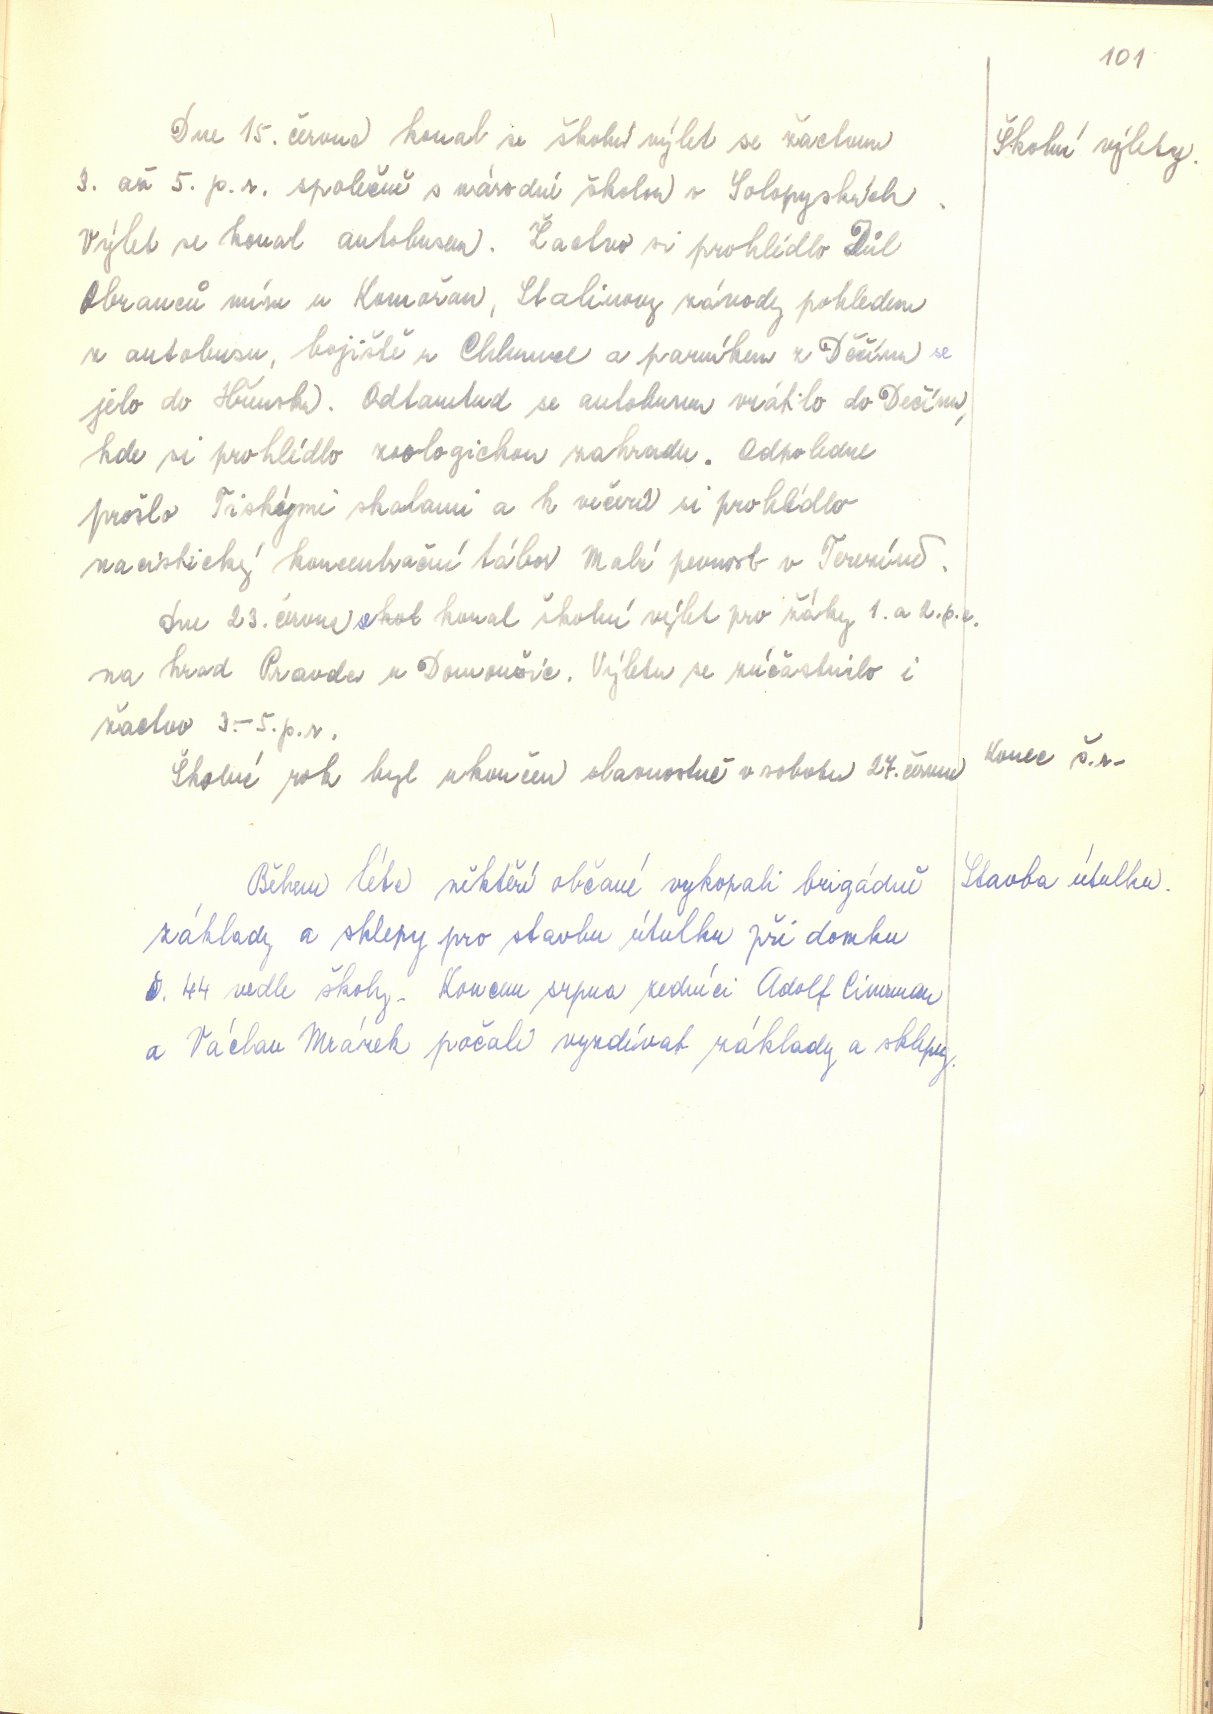 101
Dne 15. června konal se školní výlet se žactvem
Školní výlety.
3. až 5. p. r. společně s národní školou v Solopyskách.
Výlet se konal autobusem. Žactvo si prohlédlo Důl
Obránců míru u Komořan, Stalinovy závody pohledem
z autobusu, bojiště u Chlumce a parníkem z Děčína se
jelo do Hřenska. Odtamtud se autobusem vrátilo do Děčína,
kde si prohlédlo zoologickou zahradu. Odpoledne
prošlo Tiskými skalami a k večeru si prohlédlo
nacistický koncentrační tábor Malá pevnost v Terezíně.
Dne 23. června konal školní výlet pro žáky 1. a 2. p. r.
na hrad Pravda u Domoušic. Výletu se zúčastnilo i
žactvo 3.-5. p. r.
Školní rok byl ukončen slavnostně v sobotu 27. června
Konec š. r.
Během léta někteří občané vykopali brigádně
Stavba útulku.
základy a sklepy pro stavbu útulku při domku
č. 44 vedle školy. Koncem srpna zedníci Adolf Cimrman
a Václav Mrázek počali vyzdívat základy a sklepy.